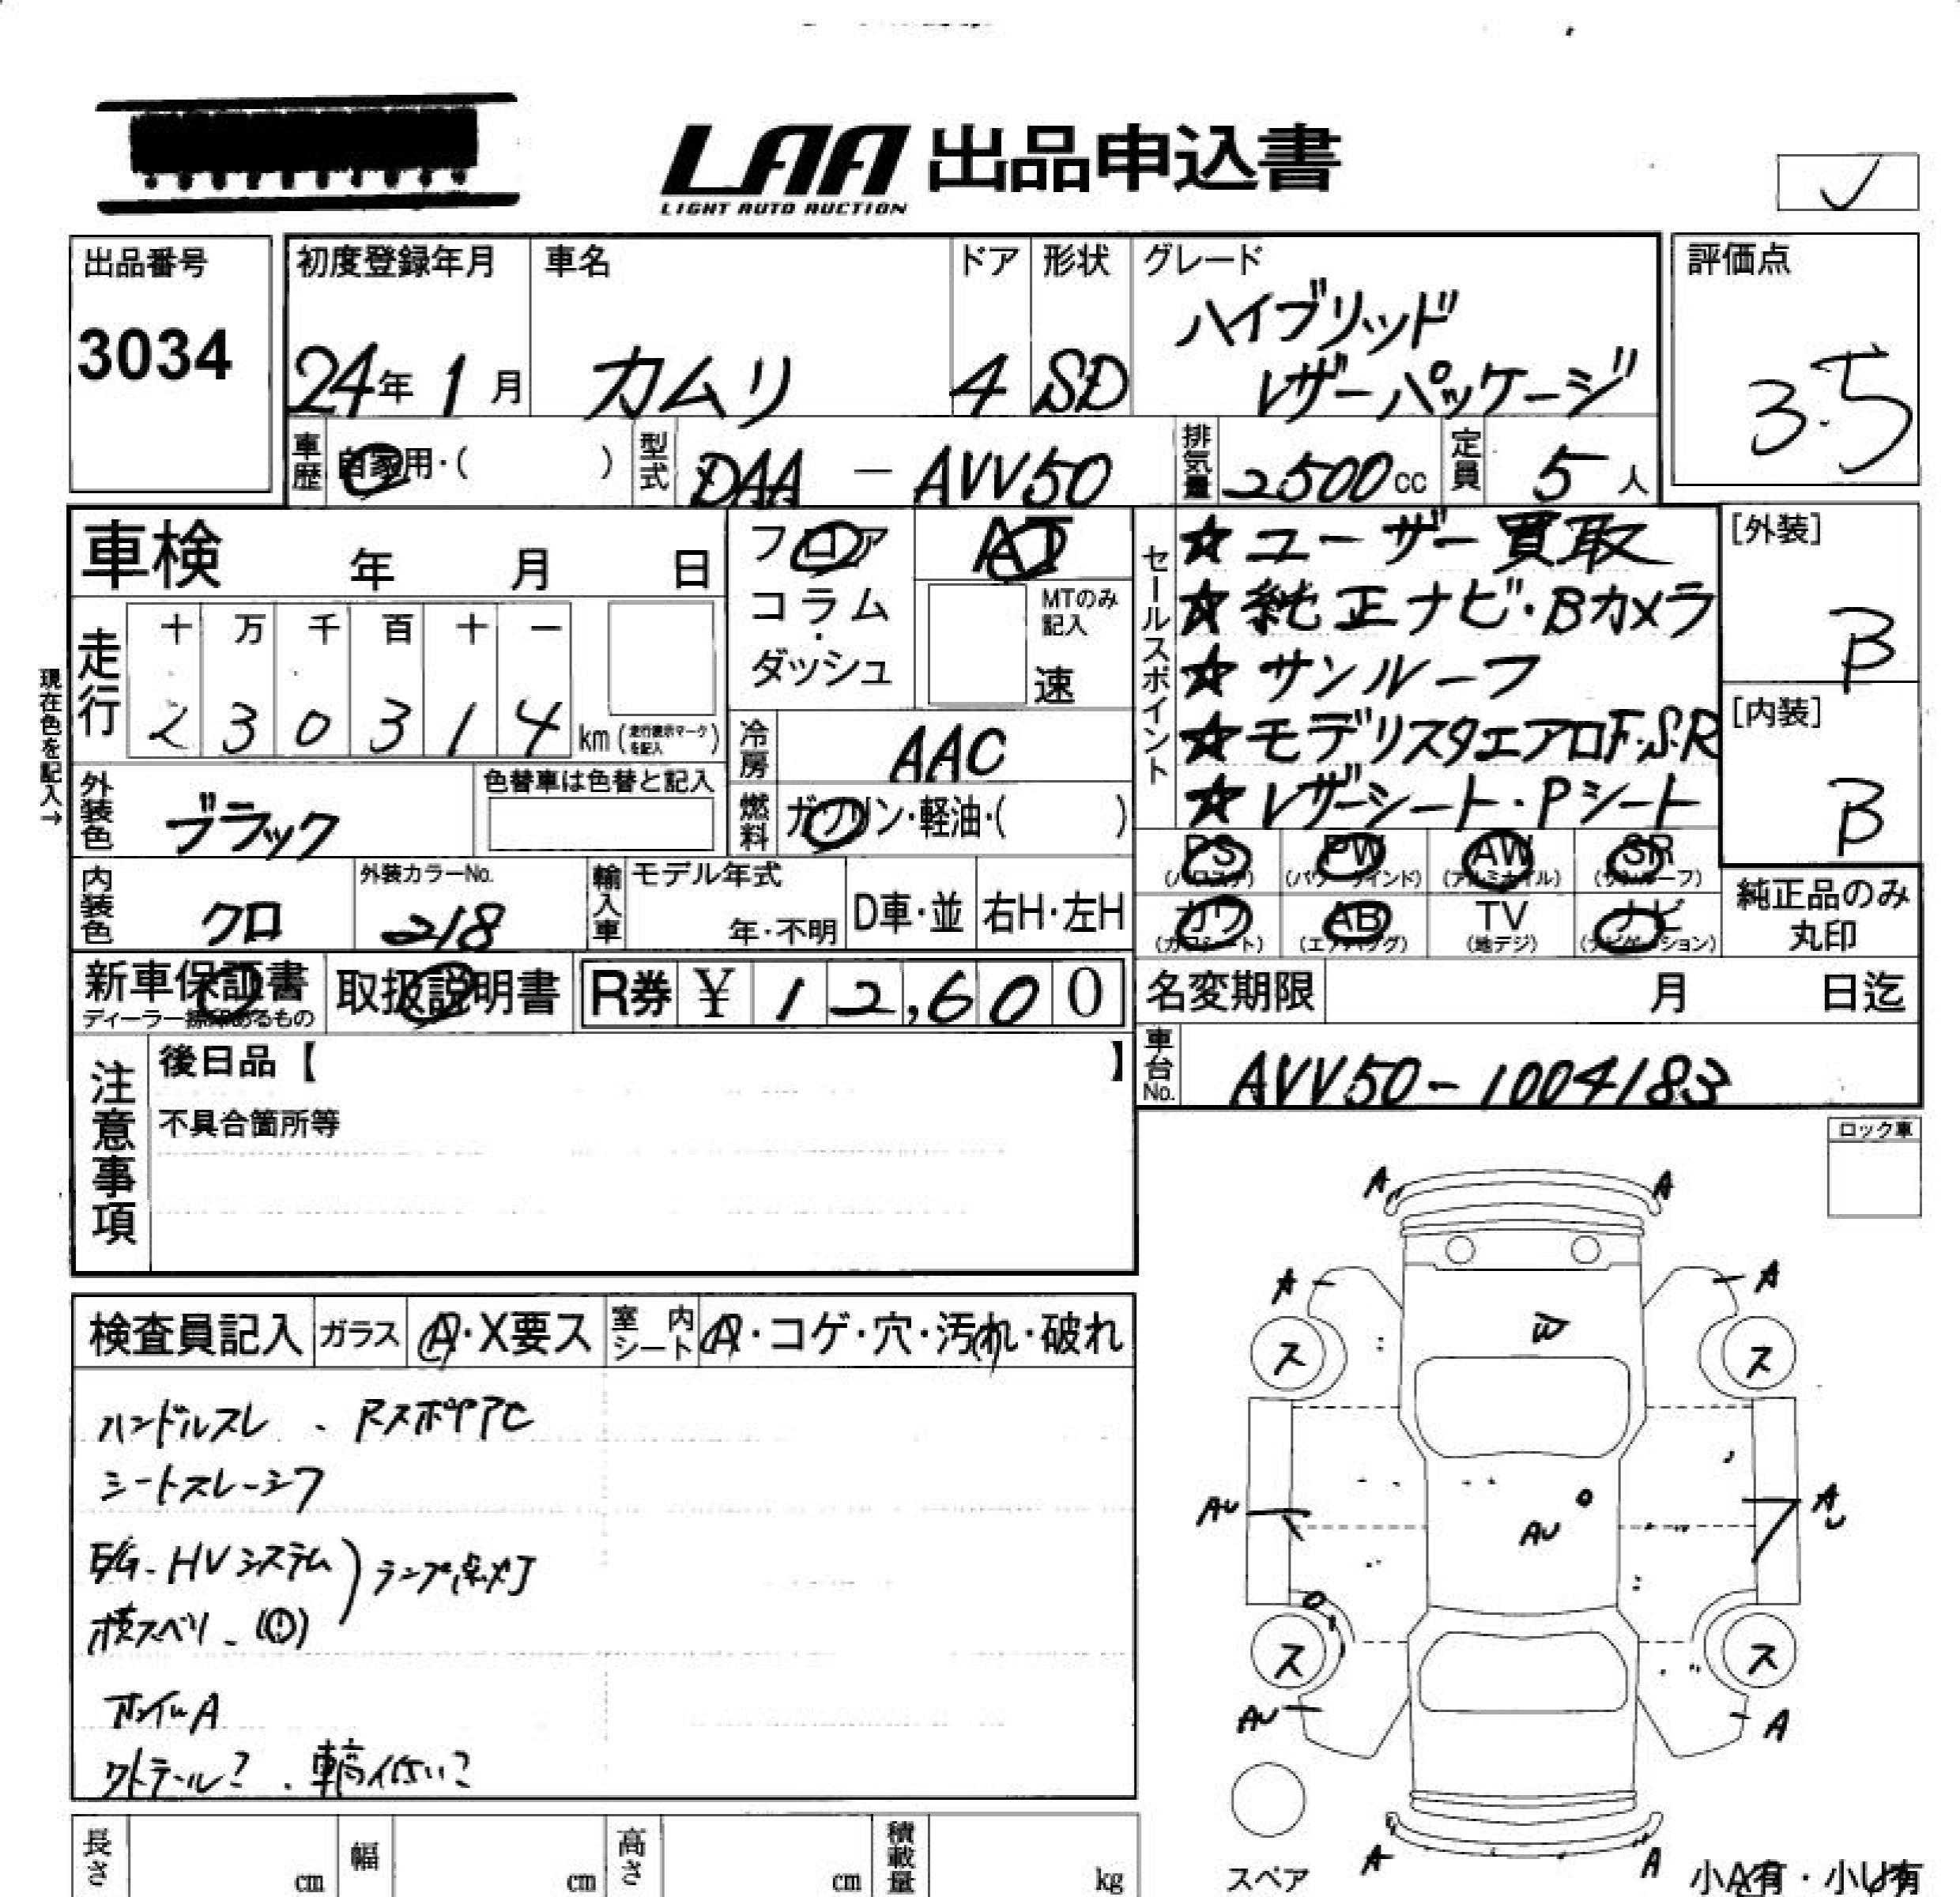 LAA 出品申込書
LIGHT AUTO AUCTION
出品番号
3034
初度登録年月
24年 1月
車名
カムリ
ドア
4
形状
SD
グレード
ハイブリッド
レザーパッケージ
評価点
3.5
車歴 自家用・( )
型式 DAA - AVV50
排気量 2500cc
定員 5人
車検 年 月 日
フロア
コラム
・
ダッシュ
AT
MTのみ
記入
速
セールスポイント
☆ユーザー買取
☆純正ナビ・Bカメラ
☆サンルーフ
☆モデリスタエアロF・S・R
☆レザーシート・Pシート
[外装]
B
[内装]
B
現在色を記入→
走行
十 万 千 百 十 一
2 3 0 3 1 4 km (走行表示マークを記入)
冷房 AAC
燃料 ガソリン・軽油・( )
外装色 ブラック
色替車は色替と記入
内装色 クロ
外装カラーNo.
218
輸入車 モデル年式
年・不明
D車・並
右H・左H
PS PW AW SR
(パワステ) (パワーウインド) (アルミホイル) (サンルーフ)
カワ AB TV ナビ
(カワシート) (エアバッグ) (地デジ) (ナビゲーション)
純正品のみ
丸印
新車保証書
ディーラー捺印あるもの
取扱説明書
R券 ¥ 12,600
名変期限 月 日迄
車台No. AVV50-1004183
注意事項
後日品【 】
不具合箇所等
ロック車
検査員記入 ガラス A・X要ス 室内シート A・コゲ・穴・汚れ・破れ
ハンドルスレ 、
シートスレーシワ
E/G、HVシステム
横スベリ、(!)
ランプ点灯
ホイルA
テール? 、車高イ
A A
A A
W
ス ス
AU AU AU
ス ス
AU A
A A
スペア
小A有・小U有
長さ cm 幅 cm 高さ cm 積載量 kg